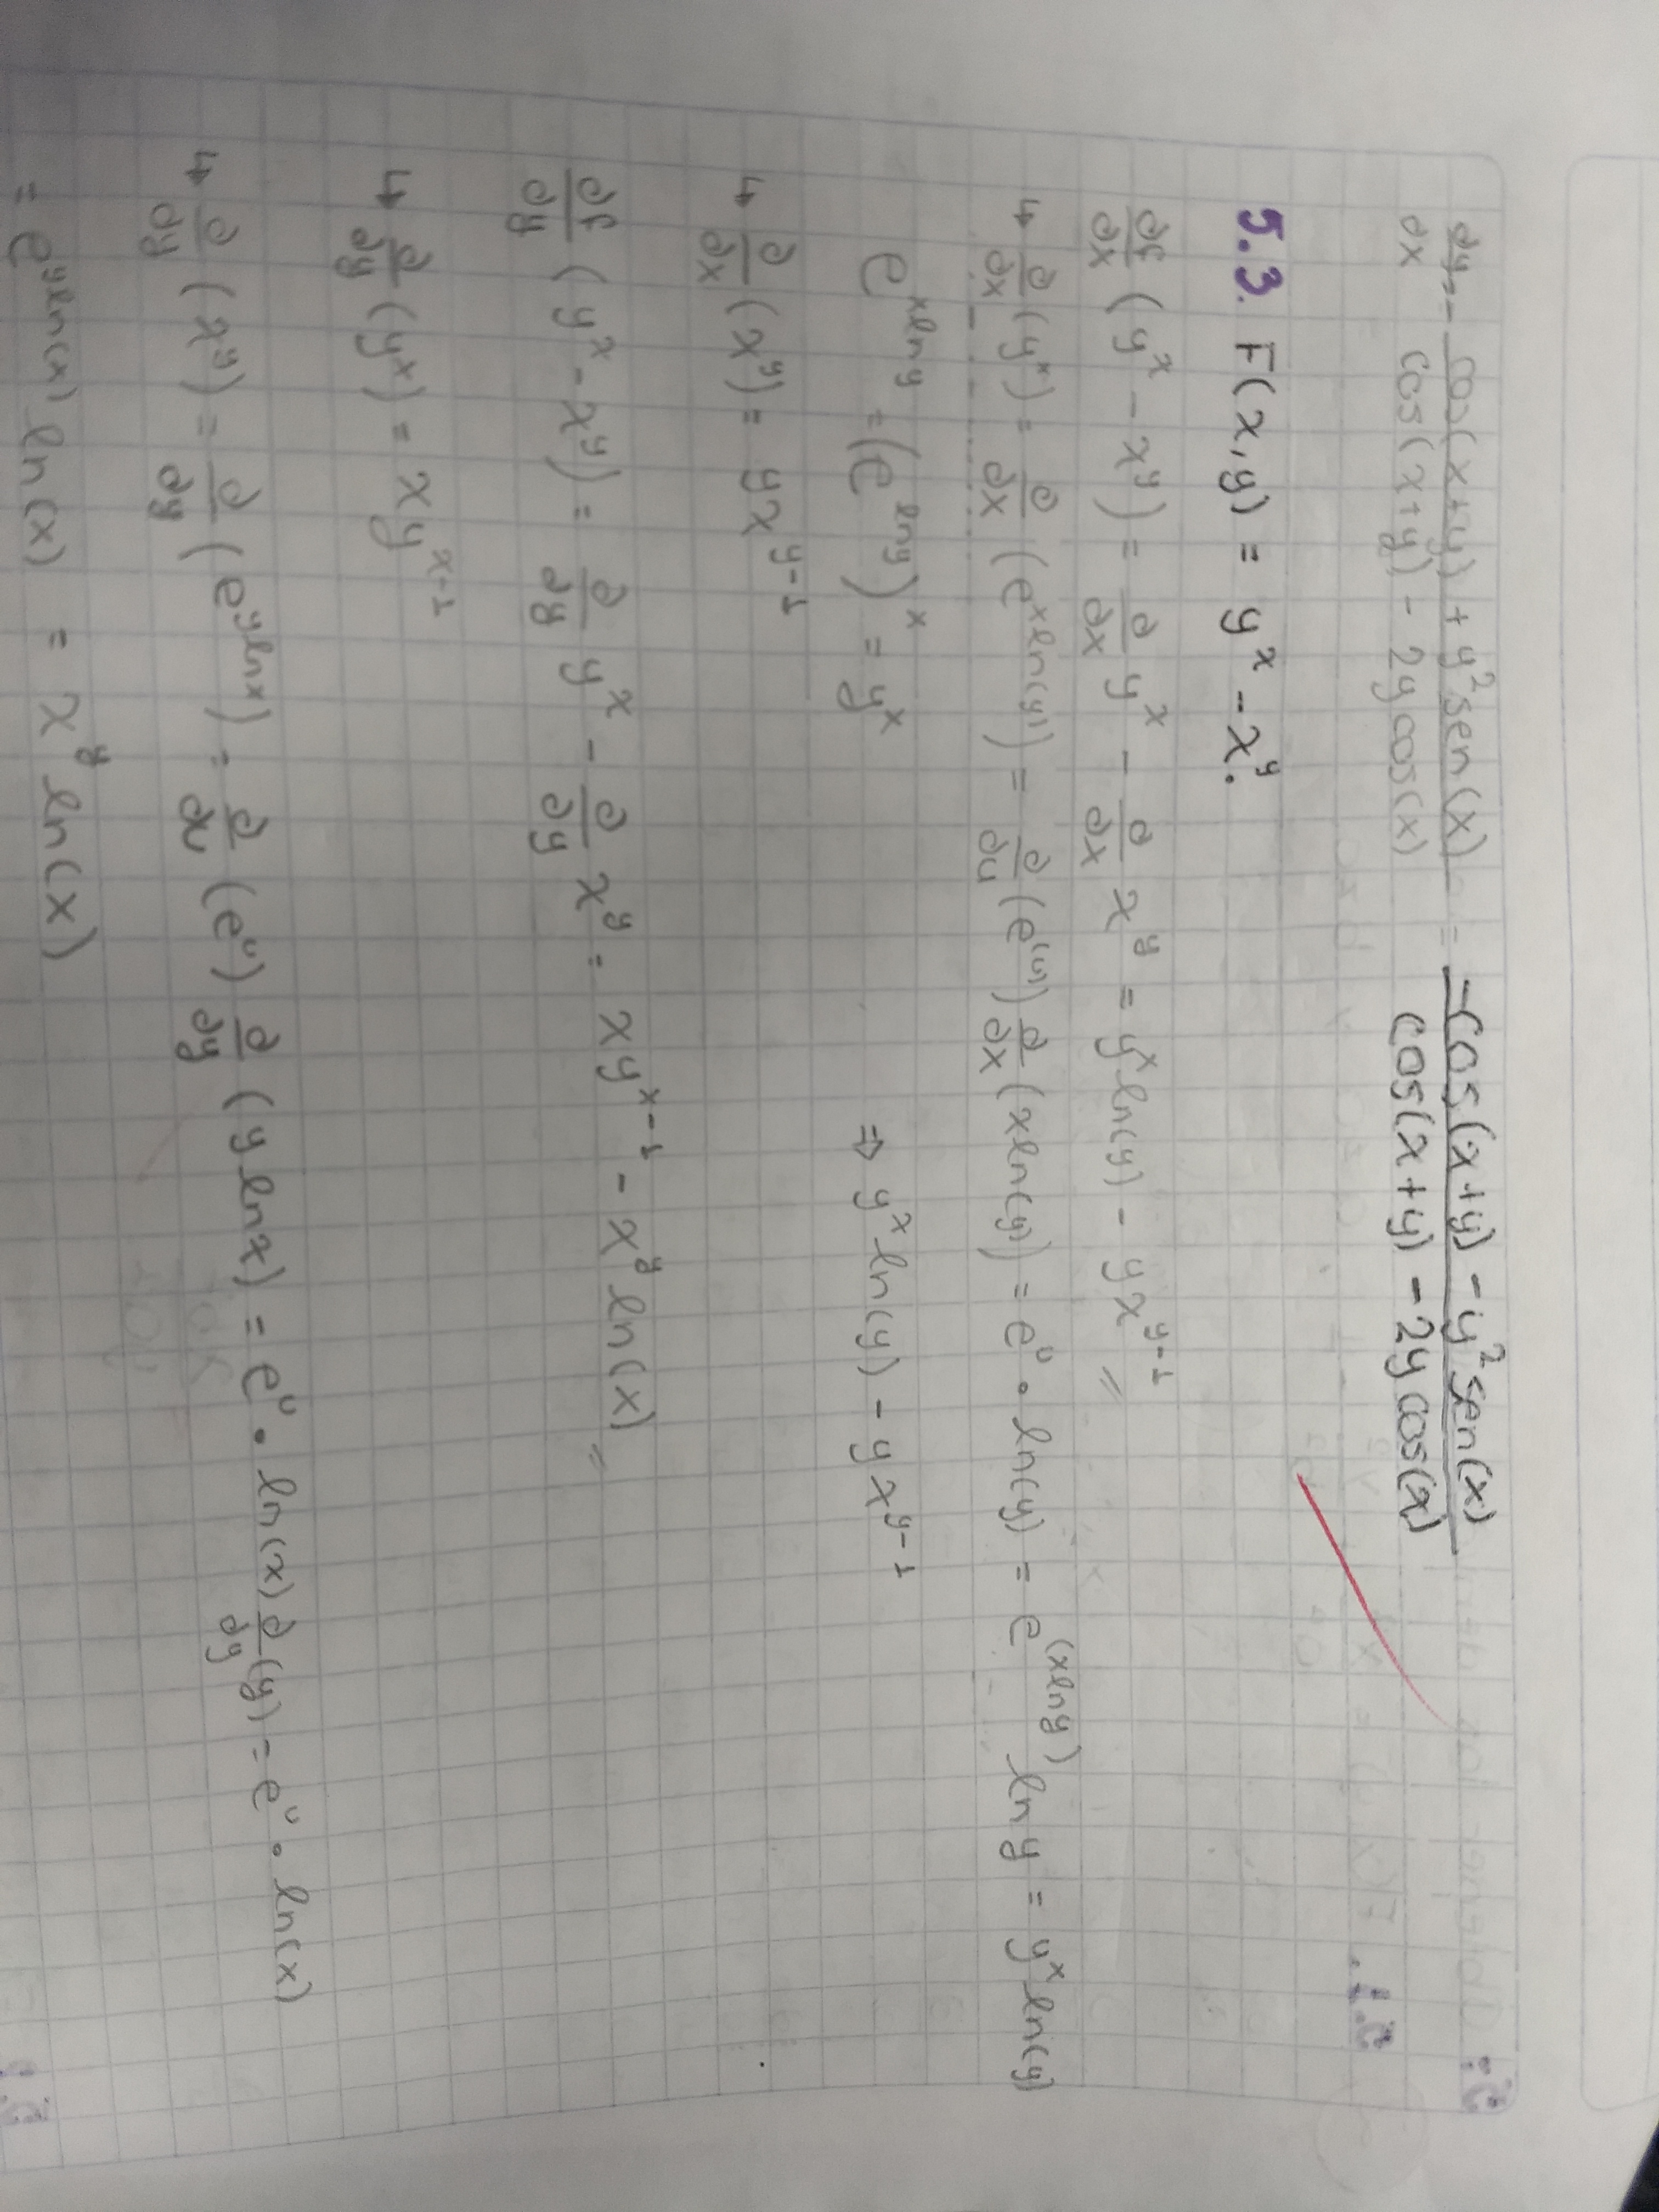 ∂y/∂x = - (cos(x+y) + y² sen(x)) / (cos(x+y) - 2y cos(x)) = (-cos(x+y) - y² sen(x)) / (cos(x+y) - 2y cos(x))
5.3. F(x,y) = y^x - x^y.
∂f/∂x (y^x - x^y) = ∂/∂x y^x - ∂/∂x x^y = y^x ln(y) - yx^(y-1)
↳ ∂/∂x (y^x) = ∂/∂x (e^(xln(y))) = ∂/∂u (e^(u)) ∂/∂x (xln(y)) = e^u • ln(y) = e^(xlny) ln y = y^x ln(y)
e^(xlny) = (e^(lny))^x = y^x ⇒ y^x ln(y) - yx^(y-1)
↳ ∂/∂x (x^y) = yx^(y-1)
∂f/∂y (y^x - x^y) = ∂/∂y y^x - ∂/∂y x^y = xy^(x-1) - x^y ln(x)
↳ ∂/∂y (y^x) = xy^(x-1)
↳ ∂/∂y (x^y) = ∂/∂y (e^(ylnx)) = ∂/∂u (e^u) ∂/∂y (y lnx) = e^u • ln(x) ∂/∂y (y) = e^u • ln(x)
= e^(yln(x)) ln(x) = x^y ln(x)